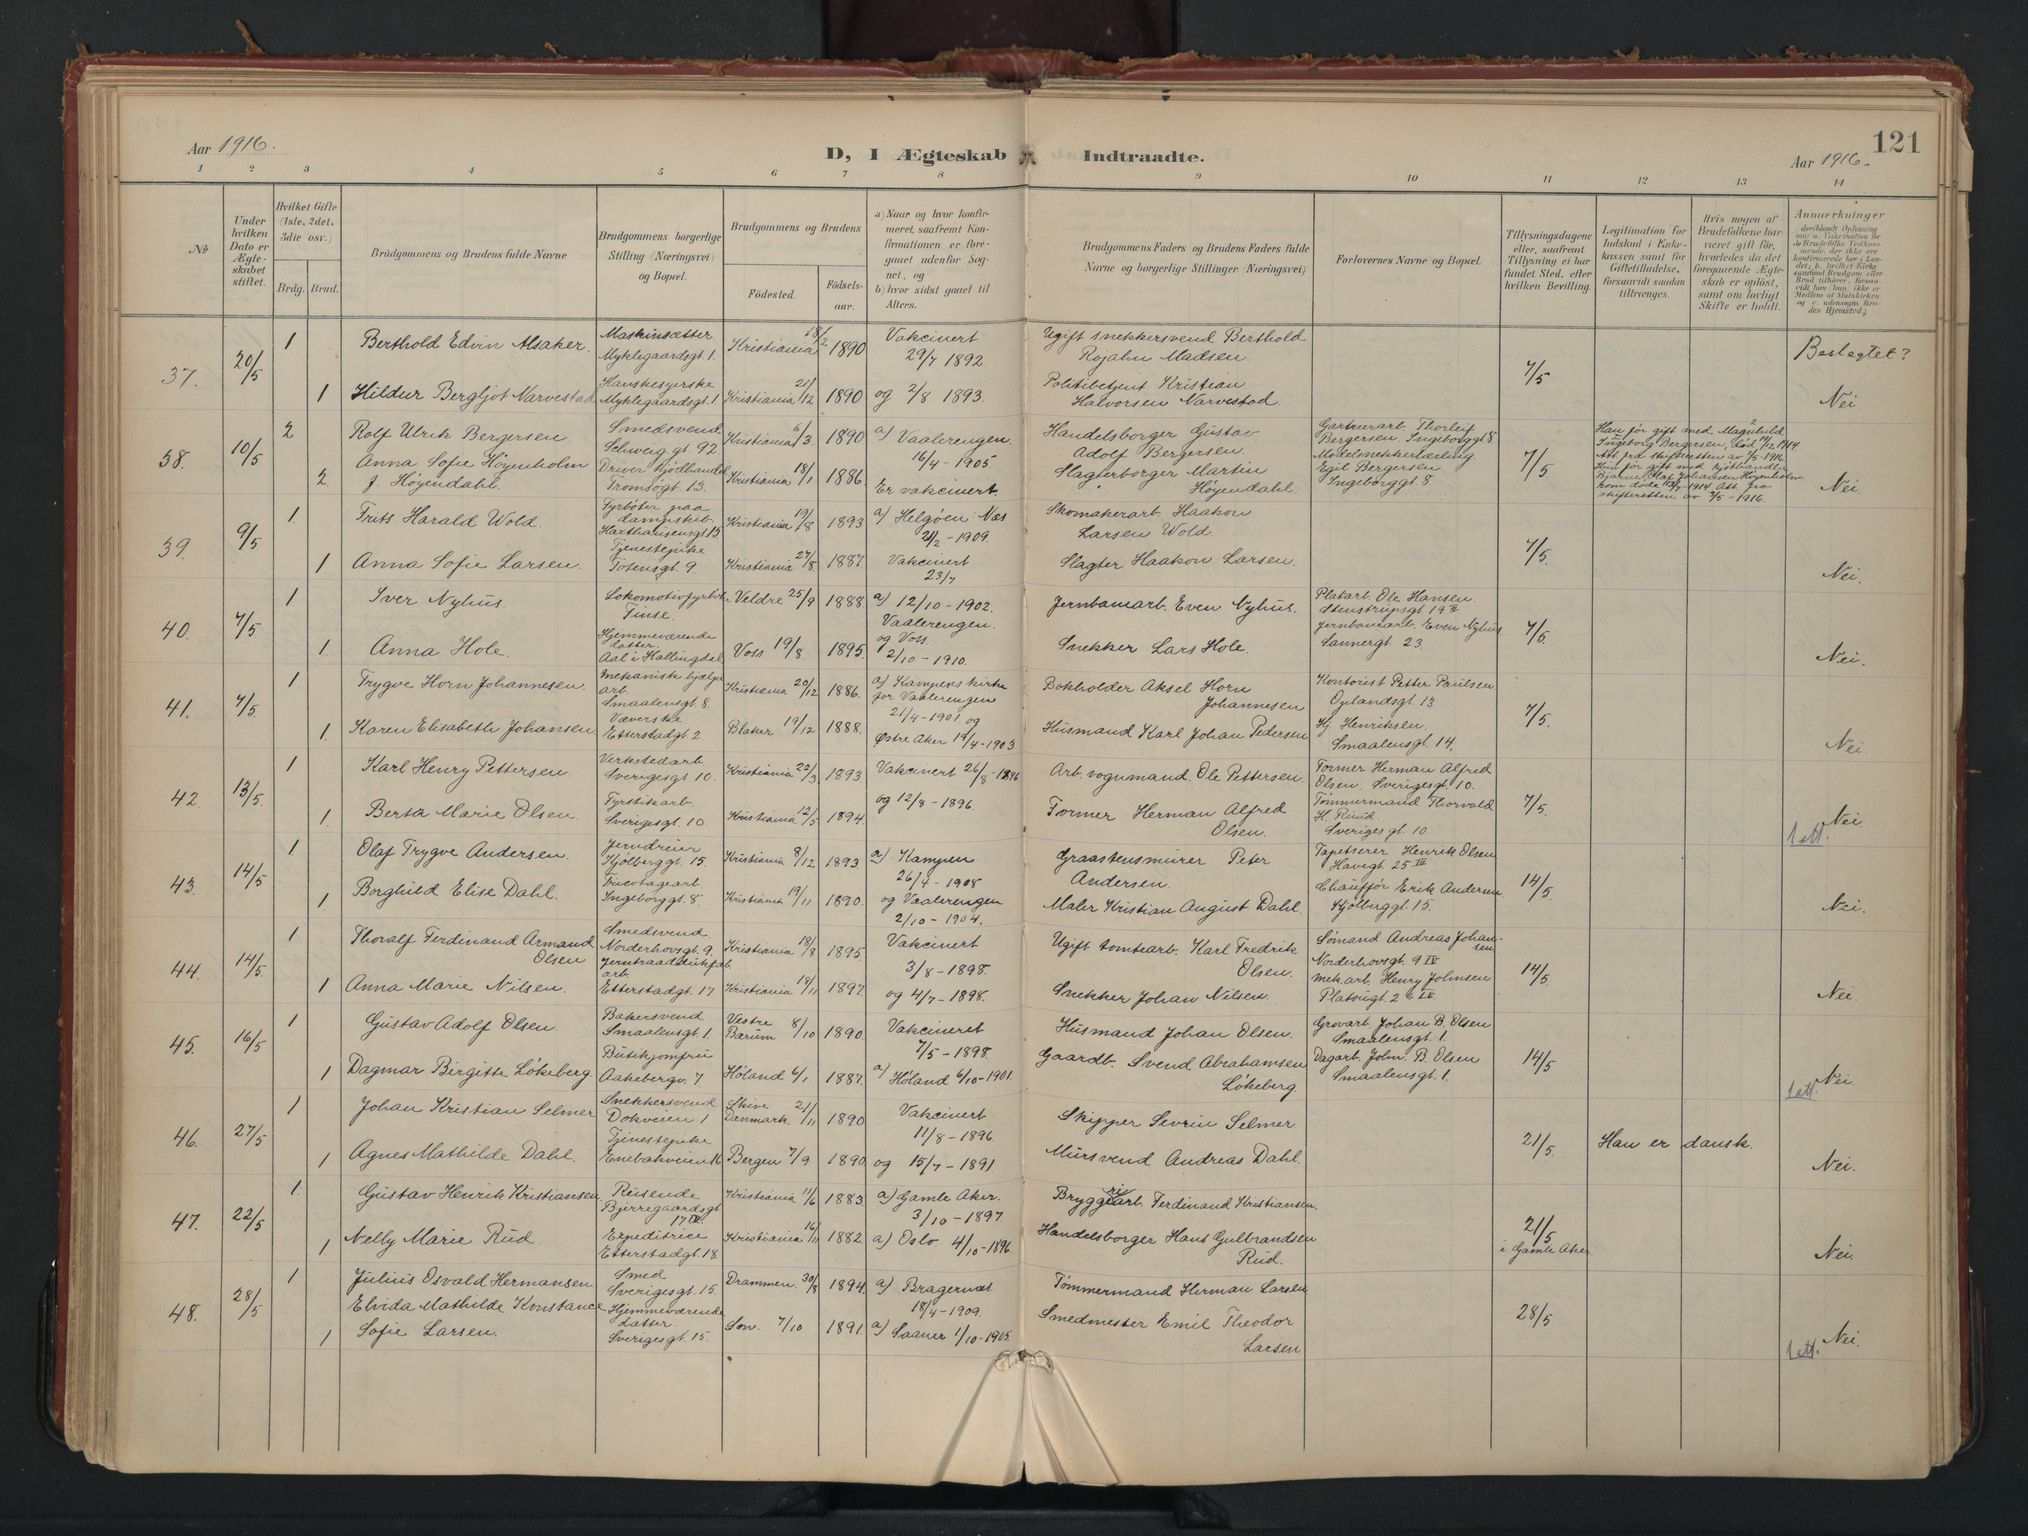 121
Aar 1916.
D, I Ægteskab Indtraadte.
Aar 1916.
1 2 3 4 5 6 7 8 9 10 11 12 13 14
№
Under hvilken Dato er Ægteskabet stiftet.
Hvilket Gifte (1ste, 2det, 3die osv.)
Brdg. Brud.
Brudgommens og Brudens fulde Navne
Brudgommens borgerlige Stilling (Næringsvei) og Bopæl.
Brudgommens og Brudens
Fødested.
Fødselsaar.
a) Naar og hvor konfirmeret, saafremt Konfirmationen er foregaaet udenfor Sognet, og
b) hvor sidst gaaet til Alters.
Brudgommens Faders og Brudens Faders fulde Navne og borgerlige Stillinger (Næringsvei)
Forlovernes Navne og Bopæl.
Tillysningsdagene eller, saafremt Tillysning ei har fundet Sted, efter hvilken Bevilling.
Legitimation for Indskud i Enkekassen samt for Giftetilladelse, forsaavidt saadan tiltrænges.
Hvis nogen af Brudefolkene har været gift før, hvorledes da det foregaaende Ægteskab er opløst, samt om lovligt Skifte er holdt.
Anmerkninger
37. 20/5 1 Berthold Edvin Alsaker. Maskinsætter Myklegaardsgt. 1 Kristiania 18/2 1890 Vakcinert 29/7 1892 Ugift snekkersvend Berthold Rojahn Madsen. 7/5 Beslægtet?
1 Hildur Bergljot Narvestad Hanskesyerske Myklegaardsgt. 1 Kristiania 21/12 1890 og 2/8 1893. Politibetjent Kristian Halvorsen Narvestad. Nei.
38. 10/5 2 Rolf Ulrik Bergersen. Smedsvend Schweig.gt. 92 Kristiania 6/3 1890 a) Vaalerengen 16/4 - 1905. Handelsborger Gustav Adolf Bergersen. Gartnerarb. Thorleif Bergersen, Ingeborggt 8 7/5
Han før gift med Magnhild Ingeborg Bergersen, død 1914. Att. fra skifteretten av /5-1916.
2 Anna Sofie Höyenholm f. Höyendahl. Driver kjödhandel Tromsøgt. 13. Kristiania 18/1 1886. Er vakcinert. Slagterborger Martin Höyendahl. Modelsnekkerlærling Egil Bergersen. Ingeborggt 8
Hun før gift med kjötthandler Bjarne Olaf Johansen Höyenholm som døde 1914 Att. fra skifteretten av /5-1916. Nei
39. 9/5 1. Frits Harald Wold. Fyrböter paa dampskib. Haxthausensgt 15 Kristiania 19/8 1893 a) Helgøen Næs 21/2 - 1909. Skomakerarb. Haakon Larsen Wold. 7/5
1 Anna Sofie Larsen. Tjenestepike Totensgt. 9. Kristiania 27/8. 1887 Vakcinert 23/7 Slagter Haakon Larsen. Nei.
40. 7/5 1 Iver Nyhus. Lokomotivfyrböter Finse. Veldre 25/9 1888. a) 12/10 - 1902. Vaalerengen. Jernbanearb. Even Nyhus. Platarb. Ole Hansen. Stenstrupsgt 19 II 7/5
1. Anna Hole. Hjemmeværende datter. Aal i Hallingdal Voss 19/8 1895. og Voss 2/10 - 1910. Snekker Lars Hole. Jernbanearb. Even Nyhus Sannergt 23. Nei.
41. 7/5. 1 Trygve Horn Johannesen. Mekanisk hjælpearb. Smaalensgt 8. Kristiania 20/12 1886. a) Kampens kirke for Vaalerengen 21/4 - 1901 og Bokholder Aksel Horn Johannesen Kontorist Petter Paulsen Oplandsgt 13 7/5
1. Karen Elisabeth Johansen Væverske Etterstadgt 2 Blaker 19/12 1888. Østre Aker 19/4 - 1903 Husmand Karl Johan Pedersen Hj. Henriksen. Smaalensgt 14. Nei
42. 13/5. 1 Karl Henry Pettersen. Verkstedarb. Sverigesgt. 10. Kristiania 22/3 1893 Vakcinert 26/8 - 1896 Arb. vognmand. Ole Pettersen. Former Herman Alfred Olsen. Sverigesgt. 10. 7/5.
1. Berta Marie Olsen. Fyrstikarb. Sverigesgt. 10 Kristiania 12/5 1894. og 12/8 - 1896 Former Herman Alfred Olsen. Tømmermand Thorvald H. Ruud Sveriges gt. 10 Nei
1 att.
43. 14/5 1 Olaf Trygve Andersen. Jerndreier Kjölberggt. 15. Kristiania 8/12 1893 a) Kampen 26/4 - 1908 Graastensmurer Peter Andersen. Tapetserer Henrik Olsen Havigt 25 III 14/5
1 Borghild Elise Dahl. Tricotagearb. Ingeborggt. 8 Kristiania 19/11 1890. og Vaalerengen 2/10 - 1904. Maler Kristian August Dahl. Chauffør Erik Andersen Kjölberggt. 15. Nei.
44. 14/5 1 Thoralf Ferdinand Armand Olsen Smedsvend. Norderhovsgt. 9. Kristiania 18/8 1895 Vakcinert 3/8 - 1898. Ugift tomtearb. Karl Fredrik Olsen. Sømand Andreas Johansen Norderhovsgt. 9 IV 14/5.
1 Anna Marie Nilsen. Jerntraaddukfab. arb. Etterstadgt. 17 Kristiania 14/11 1897. og 4/7 - 1898. Snekker Johan Nilsen. mek. arb. Henry Johnsen Platougt 26 IV Nei.
45. 16/5 1 Gustav Adolf Olsen. Bakersvend Smaalensgt. 1. Vestre Bærum 8/10 1890. Vakcineret 7/5 - 1898. Husmand Johan Olsen. Grovarb. Johan B. Olsen Smaalensgt. 1 14/5
1 Dagmar Birgitte Lökeberg. Butikjomfru Aakebergv. 7 Höland 6/1 1887. a) Höland 6/10 - 1901. Gaardb. Svend Abrahamsen Lökeberg Dagarb. John. B. Olsen Smaalensgt. 1. Nei
1 att.
46. 27/5 1 Johan Kristian Selmer Snekkersvend Dokveien 1 Skive Danmark. 21/11 1890 Vakcinert 11/8 - 1896. Skipper Sevrin Selmer. 21/5. Han er dansk.
1 Agnes Mathilde Dahl. Tjenestepike Enebakveien Bergen 7/9 1890. og 15/7 - 1891 Mursvend Andreas Dahl. Nei.
47. 22/5 1. Gustav Henrik Kristiansen. Reisende Bjerregaardsgt 17 IV. Kristiania 11/6 1883 a) Gamle Aker. 3/10 - 1897 Bryggeriarb. Ferdinand Kristiansen. 21/5 i Gamle Aker
1 Nelly Marie Rud. Expeditrice Etterstadgt. 18. Kristiania 16/11 1882. a) Oslo 4/10 - 1896. Handelsborger Hans Gulbrandsen Rud. Nei.
48. 28/5 1 Julius Osvald Hermansen Smed Sverigesgt. 15. Drammen. 30/8 1894. a) Bragernæs 18/4 - 1909. Tømmermand Herman Larsen 28/5
1 Elvida Mathilde Konstance Sofie Larsen. Hjemmeværende datter. Sverigesgt. 15 Son. 7/10 1891. a) Saaner 1/10 - 1905. Smedmester Emil Theodor Larsen Nei.
1 att.